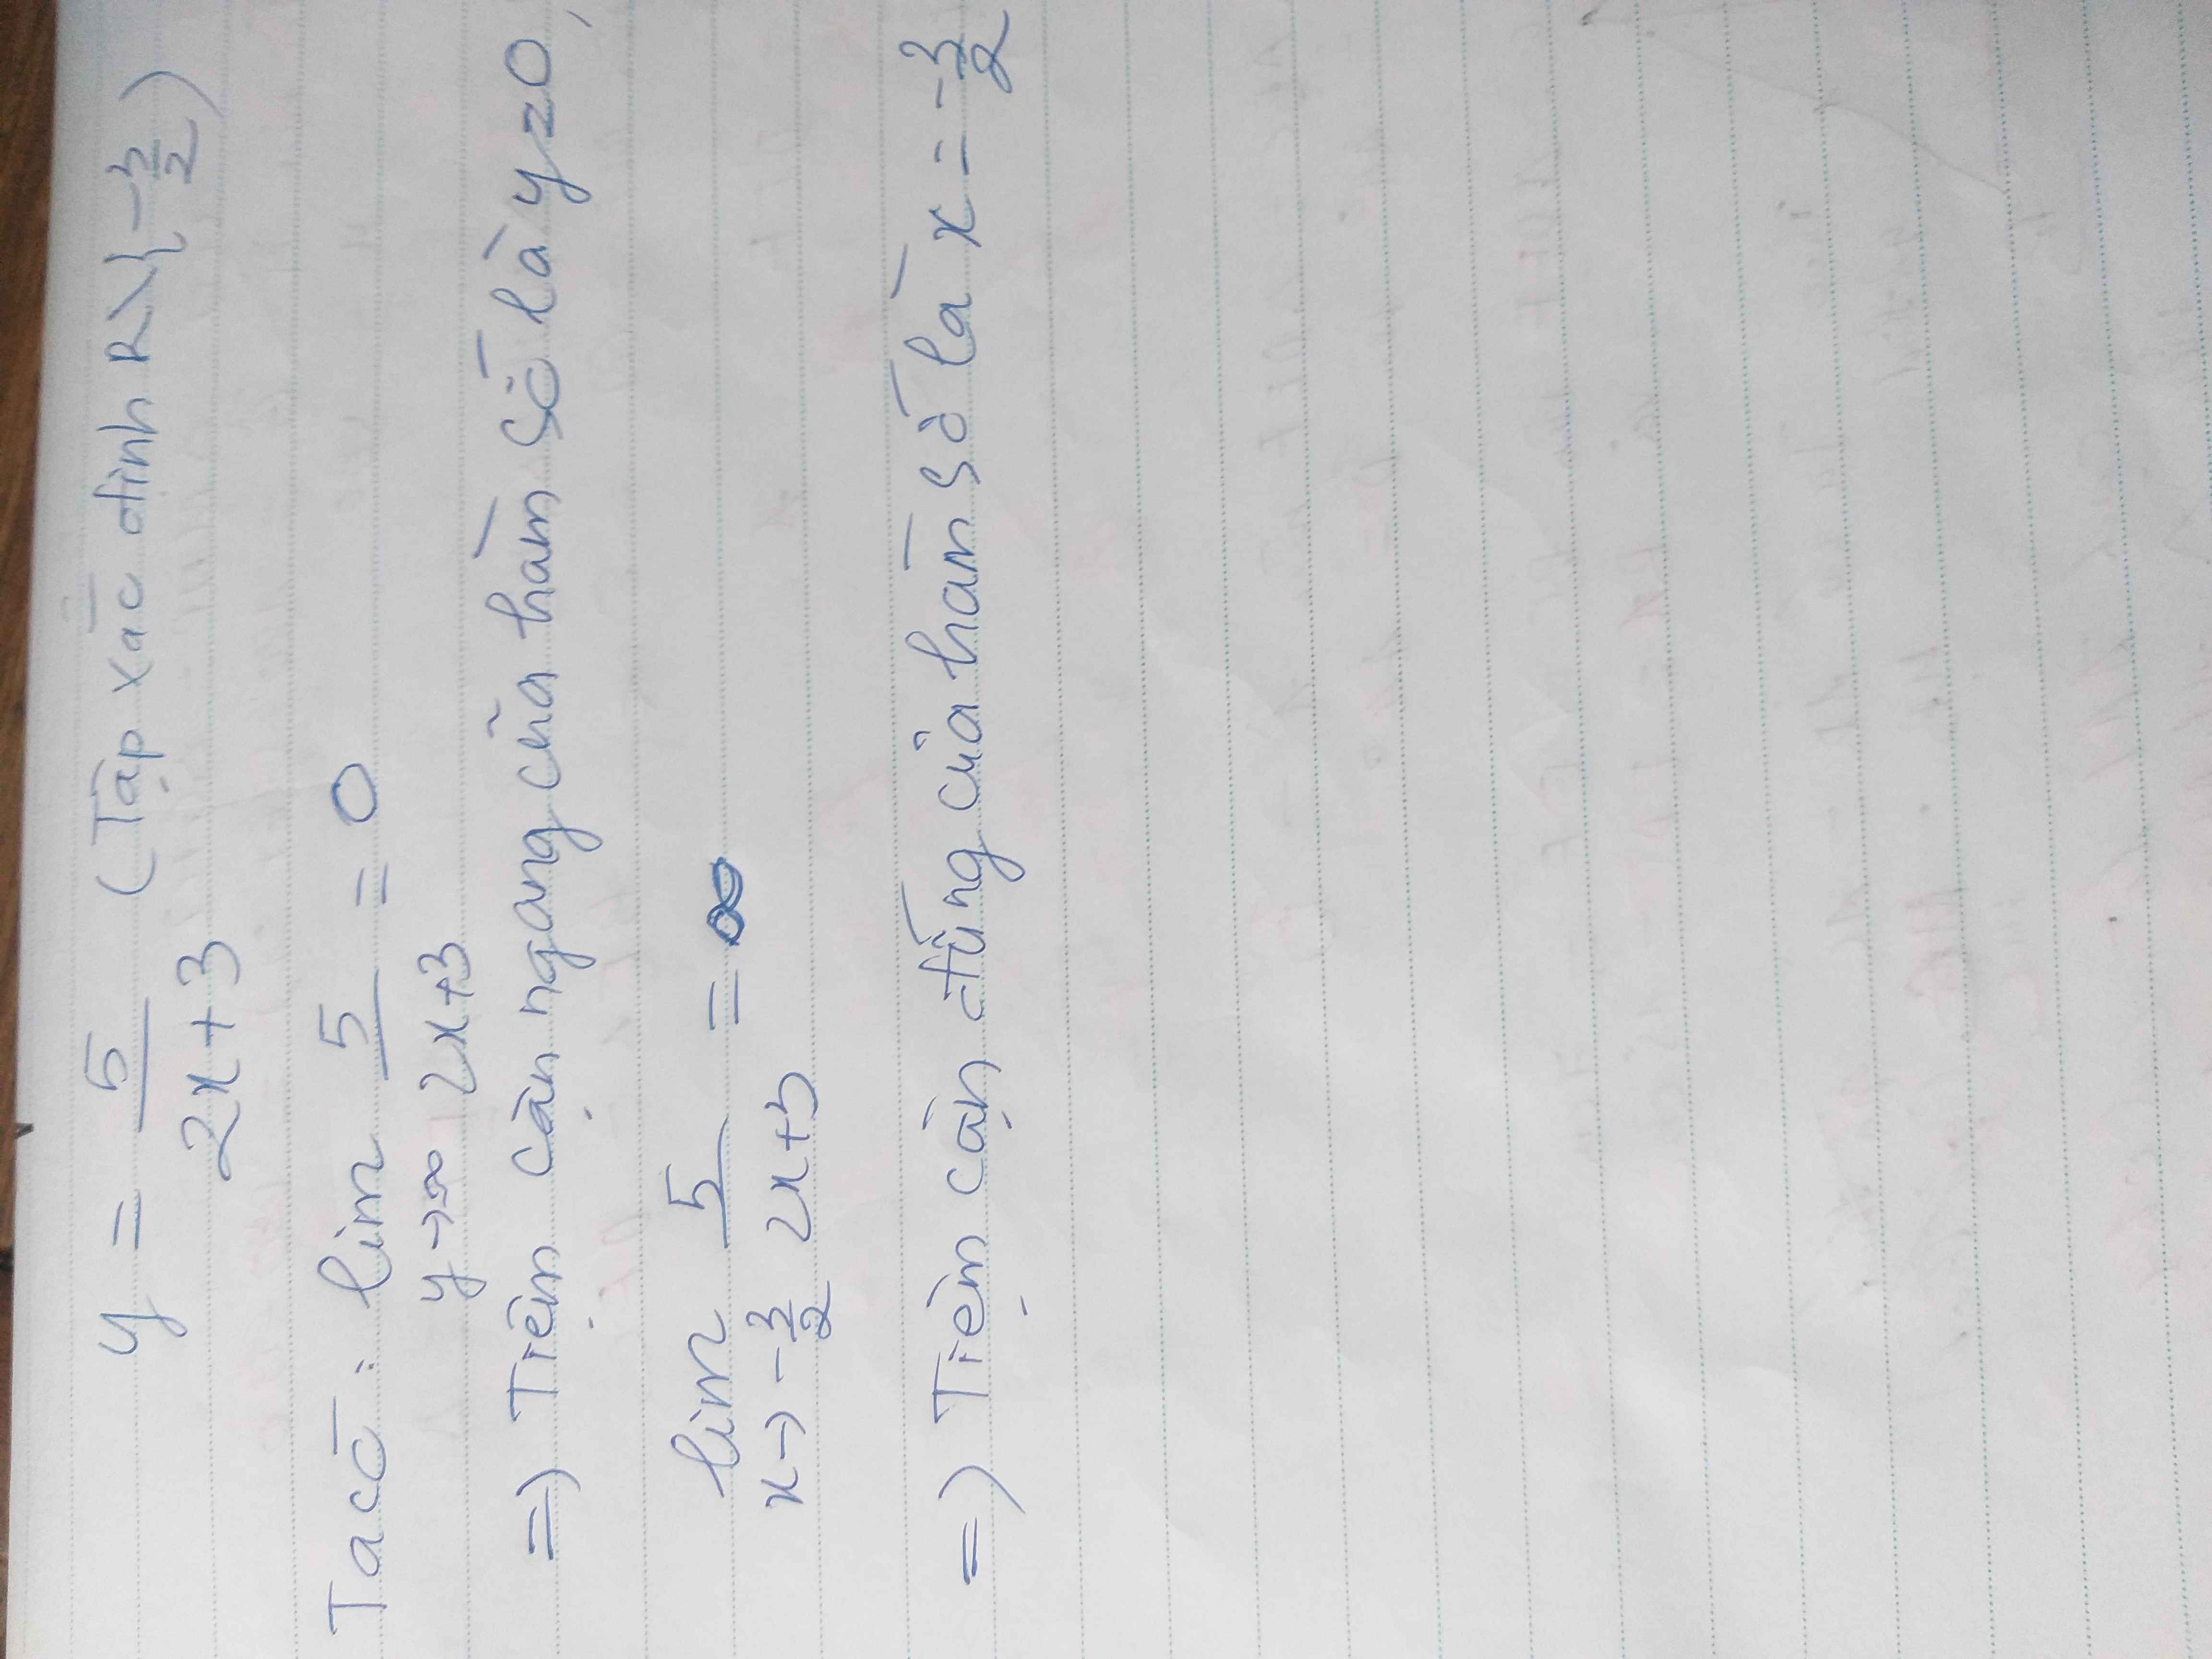 y = 5/(2x+3) (Tập xác định R\{-3/2)
Ta có: lim y→∞ 5/(2x+3) = 0
=> Tiệm cận ngang của hàm số là y=0,
lim x→-3/2 5/(2x+3) = ∞
=> Tiệm cận đứng của hàm số là x = -3/2